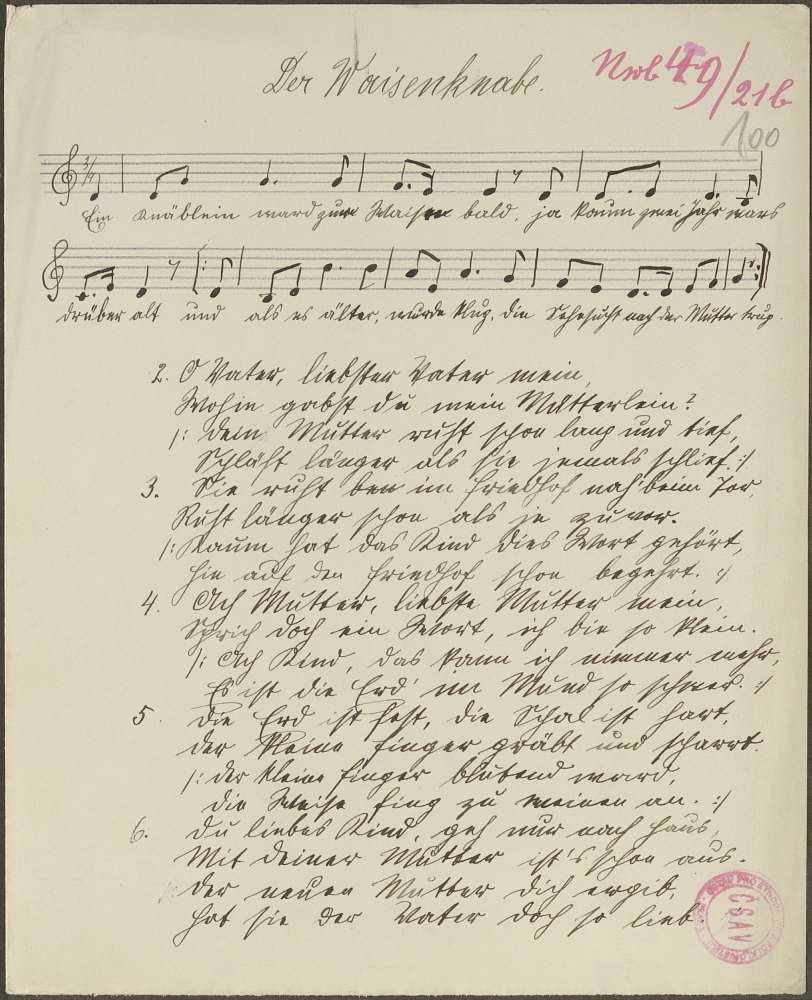 Der Waisenknabe.
49/21b
100
3/4
Ein Knäblein ward zur Waise bald, ja kaum zwei Jahr wars
drüber alt und als es älter, wurde klug, die Sehnsucht nach der Mutter trug.
2. O Vater, liebster Vater mein,
Wohin gabst du mein Mütterlein?
/: Dein Mutter ruht schon lang und tief,
Schläft länger als sie jemals schlief. :/
3. Sie ruht im Friedhof nah' beim Tor,
Ruht länger schon als je zuvor.
/: Kaum hat das Kind dies Wort gehört,
Hin auf den Friedhof schon begehrt. :/
4. Ach Mutter, liebste Mutter mein,
Sprich doch ein Wort, ich bin so klein.
/: Ach Kind, das kann ich nimmer mehr,
Es ist die Erd' im Mund so schwer. :/
5. Die Erd ist fest, die Schal ist hart,
Der kleine Finger gräbt und scharrt.
/: Der kleine Finger blutend ward,
Die Waise fing zu weinen an. :/
6. Du liebes Kind, geh nur nach Haus,
Mit deiner Mutter ist's schon aus.
Der neuen Mutter dich ergib,
Hat sie der Vater doch so lieb
ČSAV